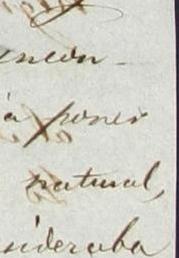 encon-
á poner
natural,
sideraba